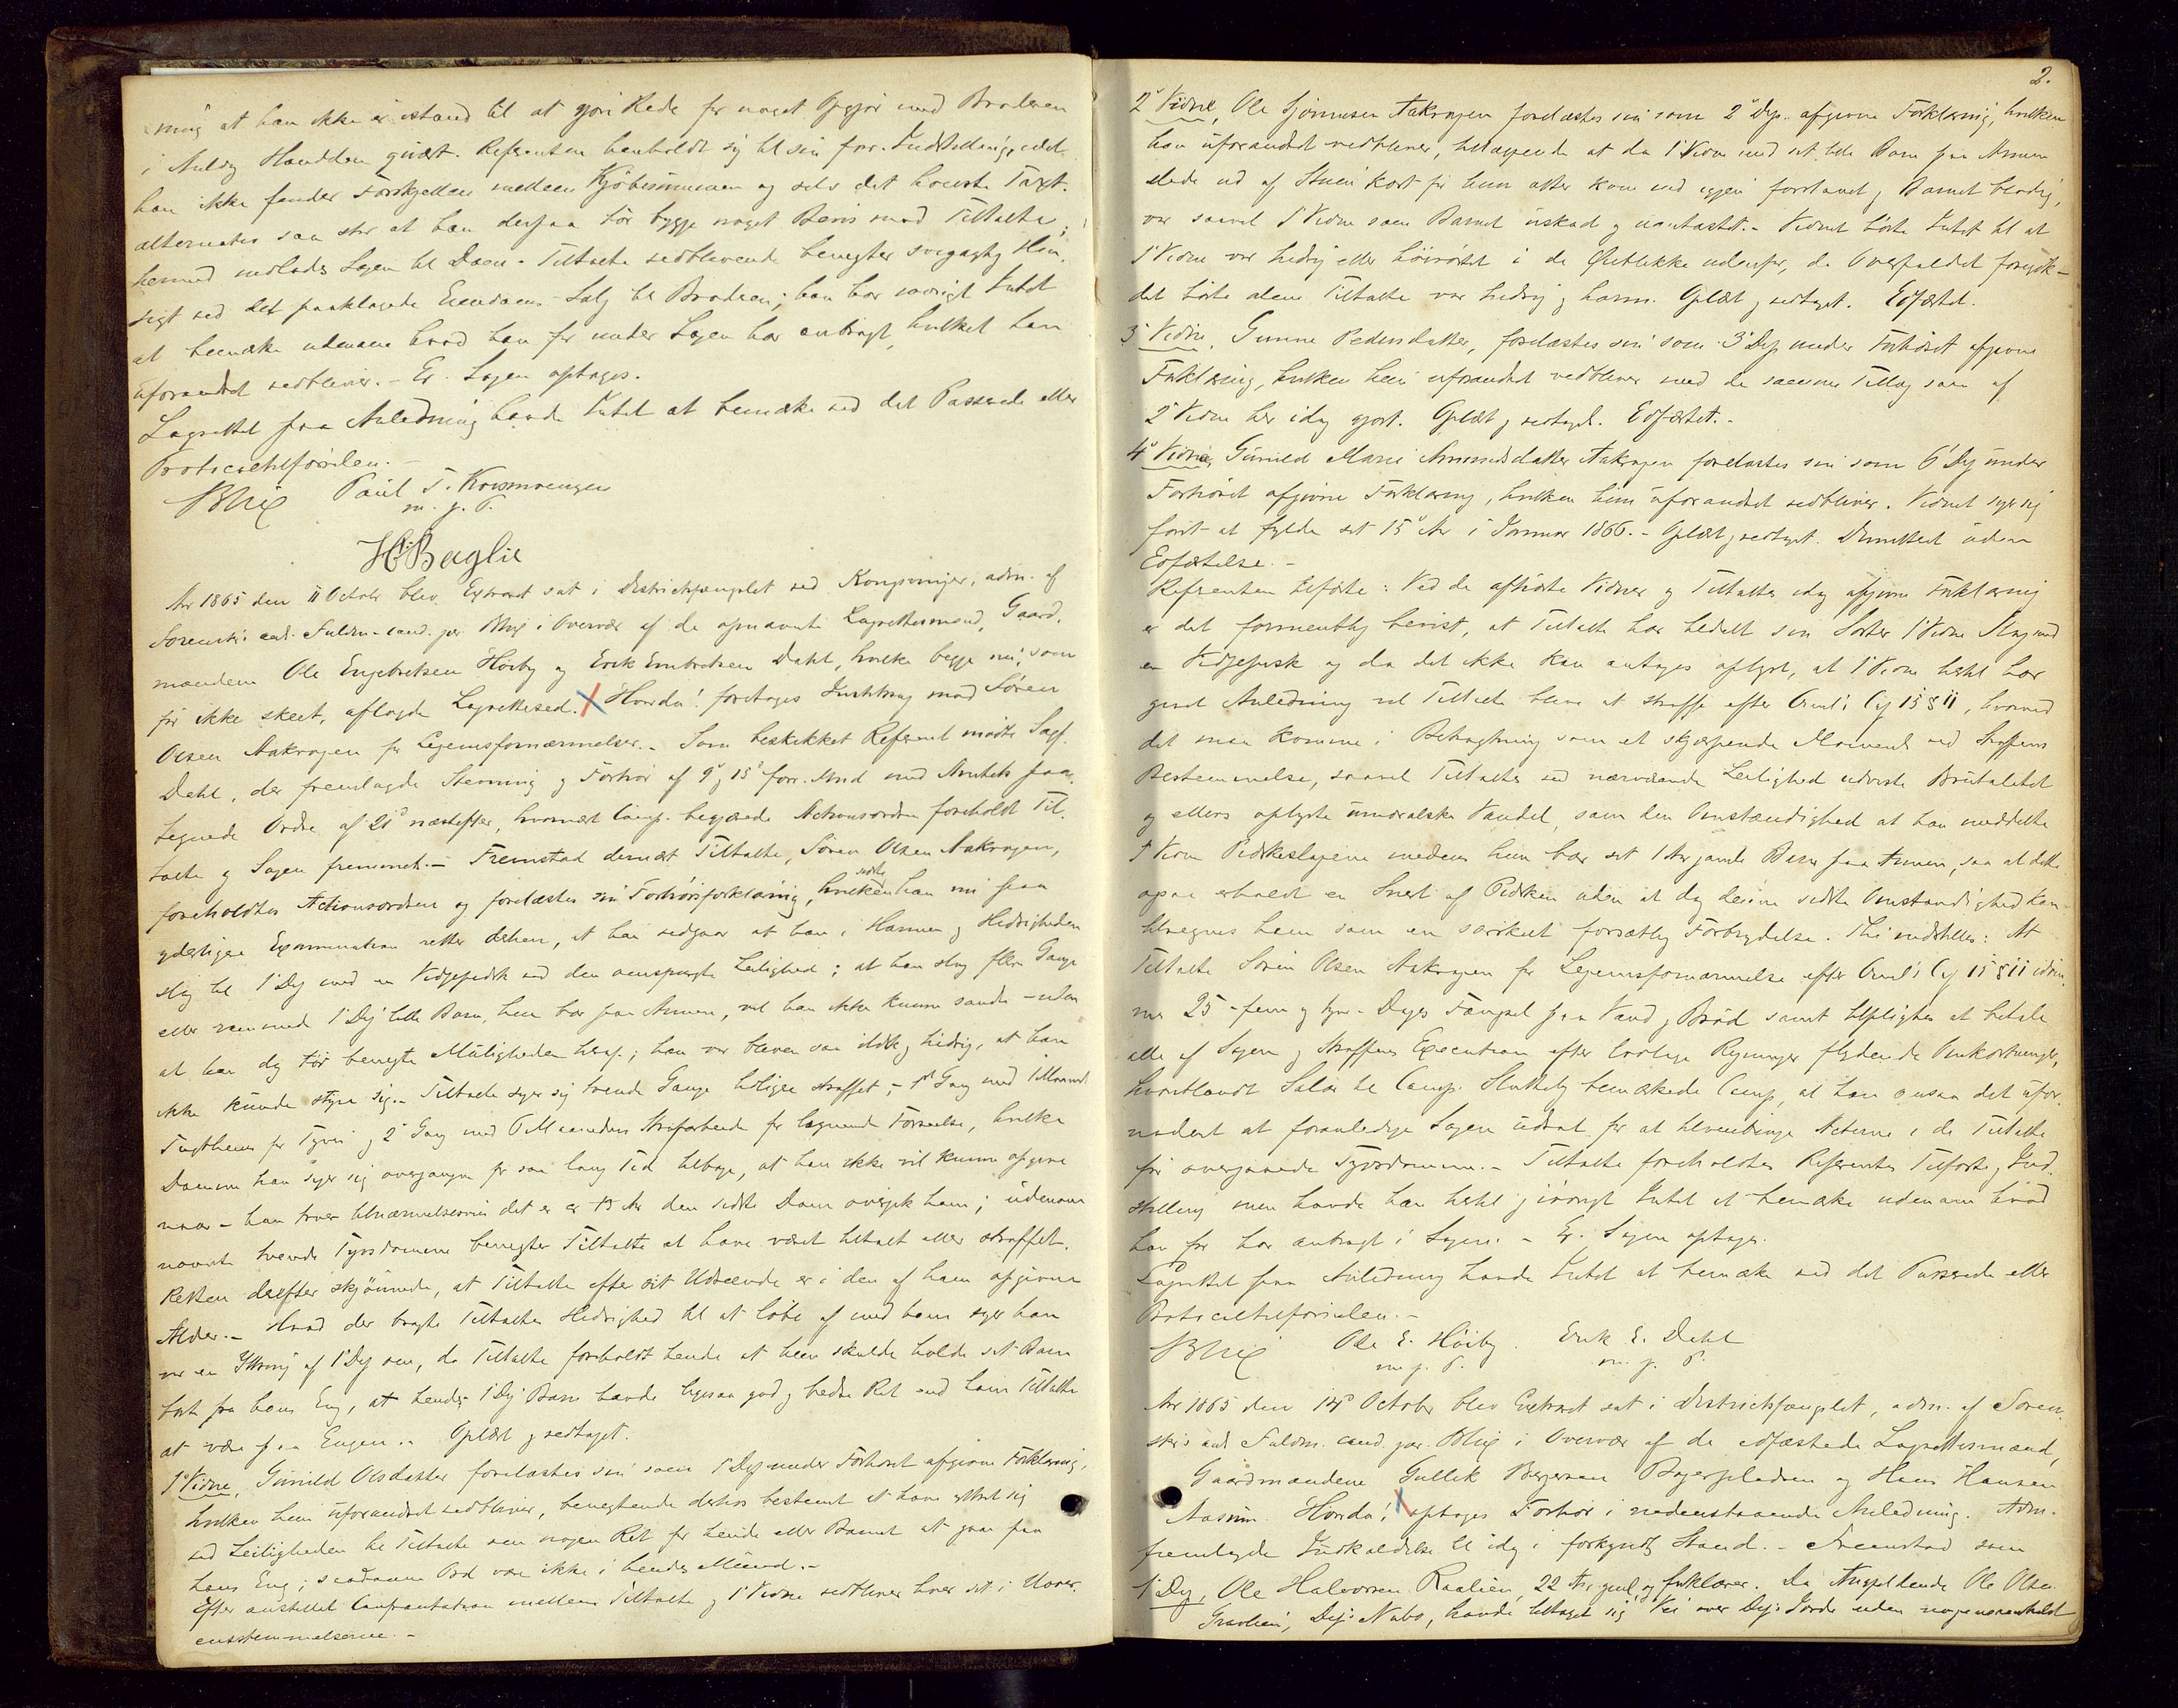 ning at han ikke er istand til at gjøre Rede for noget Opgjør med Broderen
i Anledng Handelen givet. Referenten henholdt sig til sin forr. Indstilling, idet
han ikke finder Forskjellen mellem Kjøbesummen og selv det høieste Taxt-
alternativ saa stor at han derpaa tør bygge noget Bevis mod Tiltalte;
hermed indlodes Sagen til Dom. - Tiltalte vedblivende benegter svigagtig Hen-
sigt ved det paaklagede Eiendoms-Salg til Broderen; han har iøvrigt Intet
at bemærke udenom hvad han før under Sagen har anbragt, hvilket han
uforandret vedbliver. - Er. Sagen optages.
Lagrettet paa Anledning havde Intet at bemærke ved det Passerede eller
Protocoltilførslen. -
Blix Paul T. Kovsmoengen
m. p. P.
H. Baglie
Aar 1865 den 11 October blev Extraret sat i Districtsfængslet ved Kongsvinger, adm. af
Sorenskr's aut. Fuldm. cand. jur. Blix i Overvær af de opnævnte Lagrettesmænd, Gaard-
mændene Ole Engebretsen Høiby og Erik Embretsen Dahl, hvilke begge nu, som
før ikke skeet, aflagde Lagretteseed. X Hvorda! foretages Justitssag mod Søren
Olsen Aakrogen for Legemsfornærmelser. - Som beskikket Referent mødte Sagf.
Dahl, der fremlagde Stevning og Forhør af 9' og 15' forr. Mnd med Amtets paa-
tegnede Ordre af 21' næstefter, hvornæst Comp. begjærede Actionsordren foreholdt Til-
talte og Sagen fremmet. - Fremstod dernæst Tiltalte, Søren Olsen Aakrogen,
foreholdtes Actionsordren og forelæstes sin Forhørsforklaring, hvilken sidste han nu paa
yderligere Examination retter derhen, at han vedgaar at han i Harme og Hidsigheden
slog til 1' Dep med en Vidjepidsk ved den omspurgte Leilighed; at han slog flere Gange
eller rammede 1' Dep' lille Barn, hun bar paa Armen, vil han ikke kunne sande - uden
at han dog tør benegte Muligheden heraf; han var bleven saa ildsk og hidsig, at han
ikke kunde styre sig. - Tiltalte siger sig tvende Gange tidligere straffet, - 1ste Gang med 1 Maaneds
Tugthuus for Tyveri og 2' Gang med 6 Maaneders Strafarbeide for lignende Forseelse, hvilke
Domme han siger sig overgangne for saa lang Tid tilbage, at han ikke vil kunne opgive
naar - han troer tilnærmelsesviis det er ca 13 Aar den sidste Dom overgik ham; udenom
nævnte tvende Tyvsdomme benegter Tiltalte at have været tiltalt eller straffet.
Retten derefter skjønnede, at Tiltalte efter sit Udseende er i den af ham opgivne
Alder. - Hvad der bragte Tiltaltes Hidsighed til at løbe af med ham siger han
var en Yttring af 1' Dep om, da Tiltalte foreholdt hende at hun skulde holde sit Barn
bort fra hans Eng, at hendes 1' Dep' Barn havde ligesaa god og bedre Ret end ham Tiltalte
at være paa Engen. - Oplæst og vedtaget.
1' Vidne, Gunild Olsdatter forelæstes sin som 1' Dep under Forhøret afgivne Forklaring,
hvilken hun uforandret vedbliver, benegtende derhos bestemt at have yttret sig
ved Leiligheden til Tiltalte om nogen Ret for hende eller Barnet at gaae paa
hans Eng; saadanne Ord vare ikke i hendes Mund. -
Efter anstillet Confrontation mellem Tiltalte og 1' Vidne vedbliver hver sit i Uover-
ensstemmelserne. -
2.
2' Vidne, Ole Gjørmusen Aakrogen forelæstes sin som 2' Dep. afgivne Forklaring, hvilken
han uforandret vedbliver, tillæggende at da 1' Vidne med sit lille Barn paa Armen
stede ud af Stuen kort før hun atter kom ind igjen forslaaet og Barnet blodig,
var saavel 1' Vidne som Barnet uskad og uantastet. - Vidnet hørte Intet til at
1' Vidne var hidsig eller høirøstet i de Øieblikke udenfor, da Overfaldet foregik -
det hørte alene Tiltalte var hidsig og harm. Oplæst og vedtaget. Edfæstet.
3' Vidne, Gunne Pedersdatter, forelæstes sin som 3' Dep under Forhøret afgivne
Forklaring, hvilken hun uforandret vedbliver med de samme Tillæg som af
2' Vidne her idag gjort. Oplæst og vedtaget. Edfæstet. -
4' Vidne, Gunild Marie Amundsdatter Aakrogen forelæstes sin som 6' Dep under
Forhøret afgivne Forklaring, hvilken hun uforandret vedbliver. Vidnet siger sig
først at fylde sit 15' Aar i Januar 1866. - Oplæst og vedtaget. Dimitteret uden
Edfæstelse. -
Referenten tilførte: Ved de afhørte Vidner og Tiltaltes idag afgivne Forklaring
er det formentlig bevist, at Tiltalte har tildelt sin Søster 1' Vidne Slag med
en Vidjepisk og da det ikke kan antages oplyst, at 1' Vidne hertil har
givet Anledning vil Tiltalte blive at straffe efter Criml's Cap 15 § 11, hvorved
det maa komme i Betragtning som et skjærpende Moment ved Straffens
Bestemmelse, saavel Tiltaltes ved nærværende Leilighed udviste Brutalitet
og ellers oplyste umoralske Vandel, som den Omstændighed at han meddelte
1' Vidne Pidskeslagene medens hun bar sit 1 Aar gamle Barn paa Armen, saa at dette
ogsaa erholdt en Snert af Pidsken uden at dog denne sidste Omstændighed kan
tilregnes ham som en særskilt forsætlig Forbrydelse. Thi indstilles: At
Tiltalte Søren Olsen Aakrogen for Legemsfornærmelse efter Criml's Cap 15 § 11 idøm-
mes 25 - fem og tyve - Dages Fængsel paa Vand og Brød samt tilpligtes at betale
alle af Sagen og Straffens Execution efter lovlige Regninger flydende Omkostninger,
hvoriblandt Salær til Comp. Sluttelig bemærkede Comp, at han ansaa det ufor-
nødent at foranledige Sagen udsat for at tilveiebringe Acterne i de Tiltalte
før overgaaede Tyvsdomme. - Tiltalte foreholdtes Referentens Tilførsel og Ind-
stilling men havde han hertil og iøvrigt Intet at bemærke udenom hvad
han før har anbragt i Sagen. - Er. Sagen optages.
Lagrettet paa Anledning havde Intet at bemærke ved det Passerede eller
Protocoltilførslen. -
Blix Ole E. Høiby. Erik E. Dahl
m. p. P. m. p. P.
Aar 1865 den 14' October blev Extraret sat i Districtsfængslet, adm. af Soren-
skr's aut. Fuldm. cand. jur. Blix i Overvær af de edfæstede Lagrettesmænd,
Gaardmændene Gullik Bergersen Bogerpladsen og Hans Hansen
Aasum. Hvorda! X optages Forhør i nedenstaaende Anledning. Adm.
fremlagde Indkaldelse til idag i forkyndt Stand. - Fremstod som
1' Dep, Ole Halvorsen Raalien, 22 Aar gml og forklarer. Da Angjeldende Ole Olsen
Gravlien, Dep's Nabo, havde tiltaget sig Vei over Dep's Jorde uden nogen